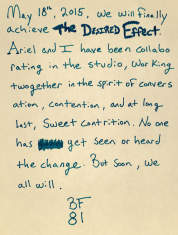 May 18th, 2015. We will finally
achieve The DESIRED EFFECT.
Ariel and I have been collabo
rating in the studio, Working
twogether in the spirit of convers
ation, contention, and at long
last, Sweet contrition. No one
has yet seen or heard
the change. But soon, we
all will.
BF
81